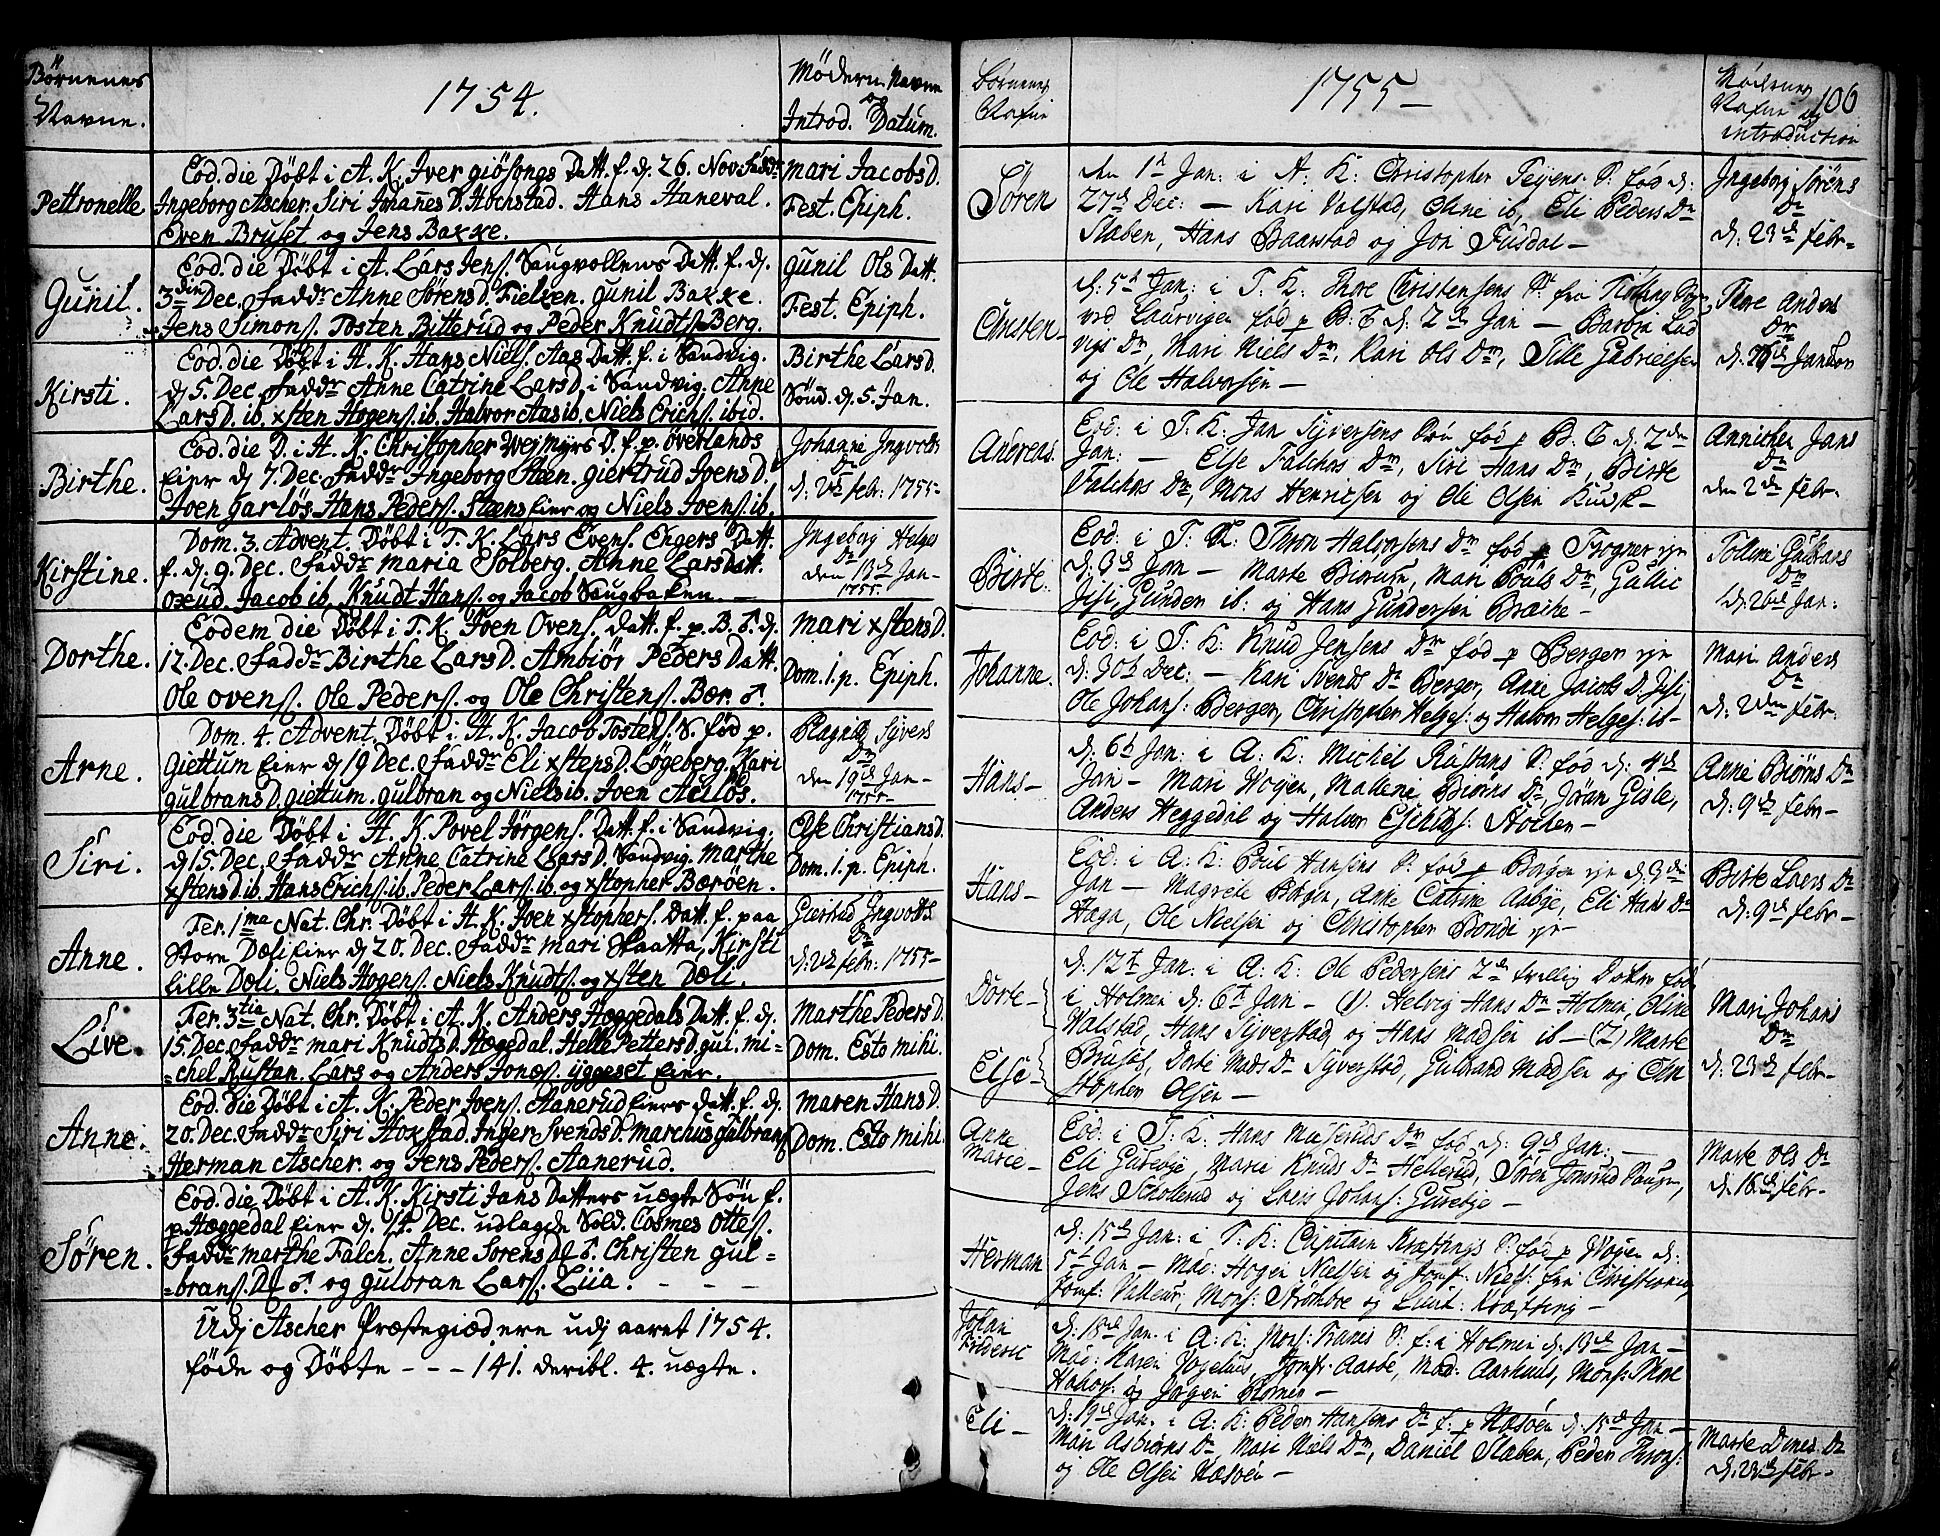 Børnenes
Navne.
1754.
Mödern. Navne
og
Introd. Datum.
Pettronelle
Eod. die Døbt i A. K. Iver giösongs Datt. f. d. 26. Nov. Faddr
Ingeborg Ascher. Siri Johañes D. Hochstad. Hans Haneval.
Even Bruset og Jens Bakke.
Mari Jacobs D.
Fest. Epiph.
Gunil.
Eod. die Døbt i A. Lars Jens. Saugvollens Datt. f. d.
3die Dec. Faddr Anne Sørens D. Fielken. Gunil Bakke.
Jens Simons. Tosten Bitterud og Peder Knudts. Berg.
Gunil Ols Datt.
Fest. Epiph.
Kirsti.
Eod. die Døbt i H. K. Hans Niels. Aas Datt. f. i Sandvig.
d 5. Dec. Faddr Anne Catrine Lars D. i Sandvig. Anne
Lars D. ib. xsten Hogens. ib. Halvor Aas ib. Niels Erichs. ibid.
Birthe Lars D.
Sønd. d. 5. Jan.
Birthe.
Eod. die D. i H. K. Christopher Wejmyrs D. f. p. Øverlands
Eier d 7. Dec. Faddr Ingeborg Steen. Giertrud Joens D.
Joen Garløs. Hans Peders. Stens Eier og Niels Joens. ib.
Johanne Ingvolds
Dr
d. 2d febr: 1755-
Kirstine.
Dom. 3. Advent. Døbt i T. K. Lars Evens. Engers Datt.
f. d. 9. Dec. Faddr Maria Solberg. Anne Lars Datt.
Oxud. Jacob ib. Knudt Hans. og Jacob Saugbakken. —
Ingeborg Helges
Dr
den 13d Jan-
1755.
Dorthe.
Eodem die Døbt i T. K. Joen Ovens. Datt. f. p. B. ♂. d.
12. Dec. Faddr Birthe Lars D. Ambiør Peders Datt.
Ole Ovens. Ole Peders. og Ole Christens. Bær. ♂.
Mari xstens D.
Dom. 1. p. Epiph.
Arne.
Dom. 4. Advent. Døbt i H. K. Jacob Tostens. S. fød p.
Giettum Eier d 19 Dec. Faddr Eli xstens D. Løgeberg. Kari
Gulbrans D. Giettum. Gulbran og Niels ib. Joen Auløs.
Ragnild Syvers
Dr
den 19d Jan-
1755-
Siri.
Eod. die Døbt i H. K. Povel Jørgens. Datt. f. i Sandvig.
d 15. Dec. Faddr Anne Catrine Lars D. Sandvig. Marthe
xstens D. ib. Hans Erichs. ib. Peder Lars. ib. og xstopher Bærøen.
Else Christians D.
Dom. 1. p. Epiph.
Anne.
Fer. 1ma Nat. Chr. Døbt i H. K. Joen xstophers. Datt. f. paa
Store Dæli Eier d 20. Dec. Faddr Mari Slaatta. Kirsti
Lille Dæli. Niels Hogens. Niels Knudts. og xsten Dæli.
Giertrud Ingvolds
Dr
d. 2d febr: 1755-
Live.
Fer. 3tia Nat. Chr. Døbt i A. K. Anders Hæggedals Datt. f. d.
15. Dec. Faddr Mari Knudts D. Hægedal. Helle Petters D. gui. Mi=
=chel Rustan. Lars og Anders Jonæs. iggeset Eier.
Marthe Peders D.
Dom. Esto mihi.
Anne.
Eod. die Døbt i A. K. Peder Joens. Aanerud Eiers Datt. f. d.
20. Dec. Faddr Siri Hoxstad. Inger Svends D. Marchus Gulbrans
Herman Ascher. og Jens Peders. Aanerud.
Maren Hans D.
Dom. Esto mihi.
Søren.
Eod. die Døbt i A. K. Kirsti Jans Datters uægte Søn f.
p. Hæggedal Eier d. 14. Dec. udlagde Sold. Cosmes Ottes.
Faddr Marthe Falch. Anne Sørens D. Christen Gul=
=brans. og Gulbran Lars. Liia. - - -
Udj Ascher Præstegiæld ere udj aaret 1754.
føde og Døbte - - - 141. deribl. 4. uægte.
Børnenes
Nafne
1755-
Mödernes
Nafne og
introduction
106
Sören
den 1te Jan: i A: K: Christopher Teyens S: fød d:
27de Dec: - Kari Valstad, Oline ib, Eli Peders Dr
Staben, Hans Baarstad og Jon Fusdal-
Ingeborg Sørens
Dr
d: 23d febr-
Christen-
d: 5t Jan: i T: K: Thore Christensens S:
ved Laurvigen fød p B: d: 2de Jan -
vigs Dr, Mari Niels Dr, Kari Ols Dr, Tille Gabrielsen
og Ole Halvorsen-
Thore Anders
Dr
Andreas.
Eod: i T: K: Jan Syversens Søn fød p B: d: 2den
Jan: - Else Falchos Dr, Siri Hans Dr, Birte
Falchos Dr, Mons Henricsen og Ole Olsen Kudsk-
Annichen Jans
Dr
den 2de febr:
Birte.
Eod: i T: K: Thron Halvorsens Dr fød p Fogner eje
d. 3d Jan - Marte Bierum, Mari Pouls Dr, Gullic
Jisi, Gunder ib: og Hans Gundersen Bræche-
Gulbrans
Dr
d: 26d Jan:
Johanne.
Eod: i T: K: Knud Jensens Dr fød p Berger eje
d: 30t Dec: - Kari Svends Dr Berger, Anne Jacobs D: Jisi,
Ole Johans: Berger, Christopher Helges: og Halvor Helges: ib-
Mari Anders
Dr
d: 2den febr-
Hans-
d: 6t Jan: i A: K: Michel Rustans S: fød d: 4de
Jan - Mari Wogen, Mallene Biørns Dr, Jøran Gisle,
Anders Heggedal og Halvor Eschilds: Stochen-
Anne Biørns Dr
d: 9de febr-
Hans-
Eod: i A: K: Poul Hansens S: fød p Borgen eje d. 3die
Jan - Magrete Borgen, Anne Catrine Aabye, Eli Hans Dr
Haga, Ole Nielsen og Christopher Bondi eje-
Birte Laers Dr
d: 9de febr-
Dorte-
Else-
d: 12t Jan: i A: K: Ole Pedersens 2de tvillig Døttre fød
i Holmen d: 6t Jan - (1. Helvig Hans Dr Holmen, Oline
Walstad, Hans Syverstad og Hans Madsen ib - (2) Marte
Bruset, Dorte Mads Dr Syverstad, Gulbrand Madsen og Chri
stopher Olsen-
Mari Johans
Dr
d: 23d febr-
Anne
Marie-
Eod: i T: K: Hans Maseruds Dr fød d: 9d Jan: -
Eli Gurebye, Marie Knuds Dr Hellerud, Sören Jonsrud
Jens Schollerud og Laers Johans: Gurebye-
Marte Ols Dr
d. 16de febr-
Herman
d: 15d Jan: i T: K: Capitain Kraftings S: fød p Wøyen d:
5t Jan - Mad: Hogen Nielsen og Jomf: Niels: fra Christiania
Jomf: Valleur, Mons: Strömboe og Lieut: Krafting-
Johan
Frideric
d: 18d Jan. i A: K: Mons: Tranes S: f: i Holmen d: 13d Jan -
Mad: Karen Vogelius, Jomf: Aarbe, Mad: Aarhuus, Mons: Thore
og Jørgen
Eli-
d: 19d Jan. i A: K: Peder Hansens Dr f: p Næsøen d: 15d Jan -
Mari Asbiørns Dr, Mari Niels Dr, Daniel Staben, Peder Throns:
og Ole Olsen Næsøen-
Marte Dines Dr
d: 23de febr-